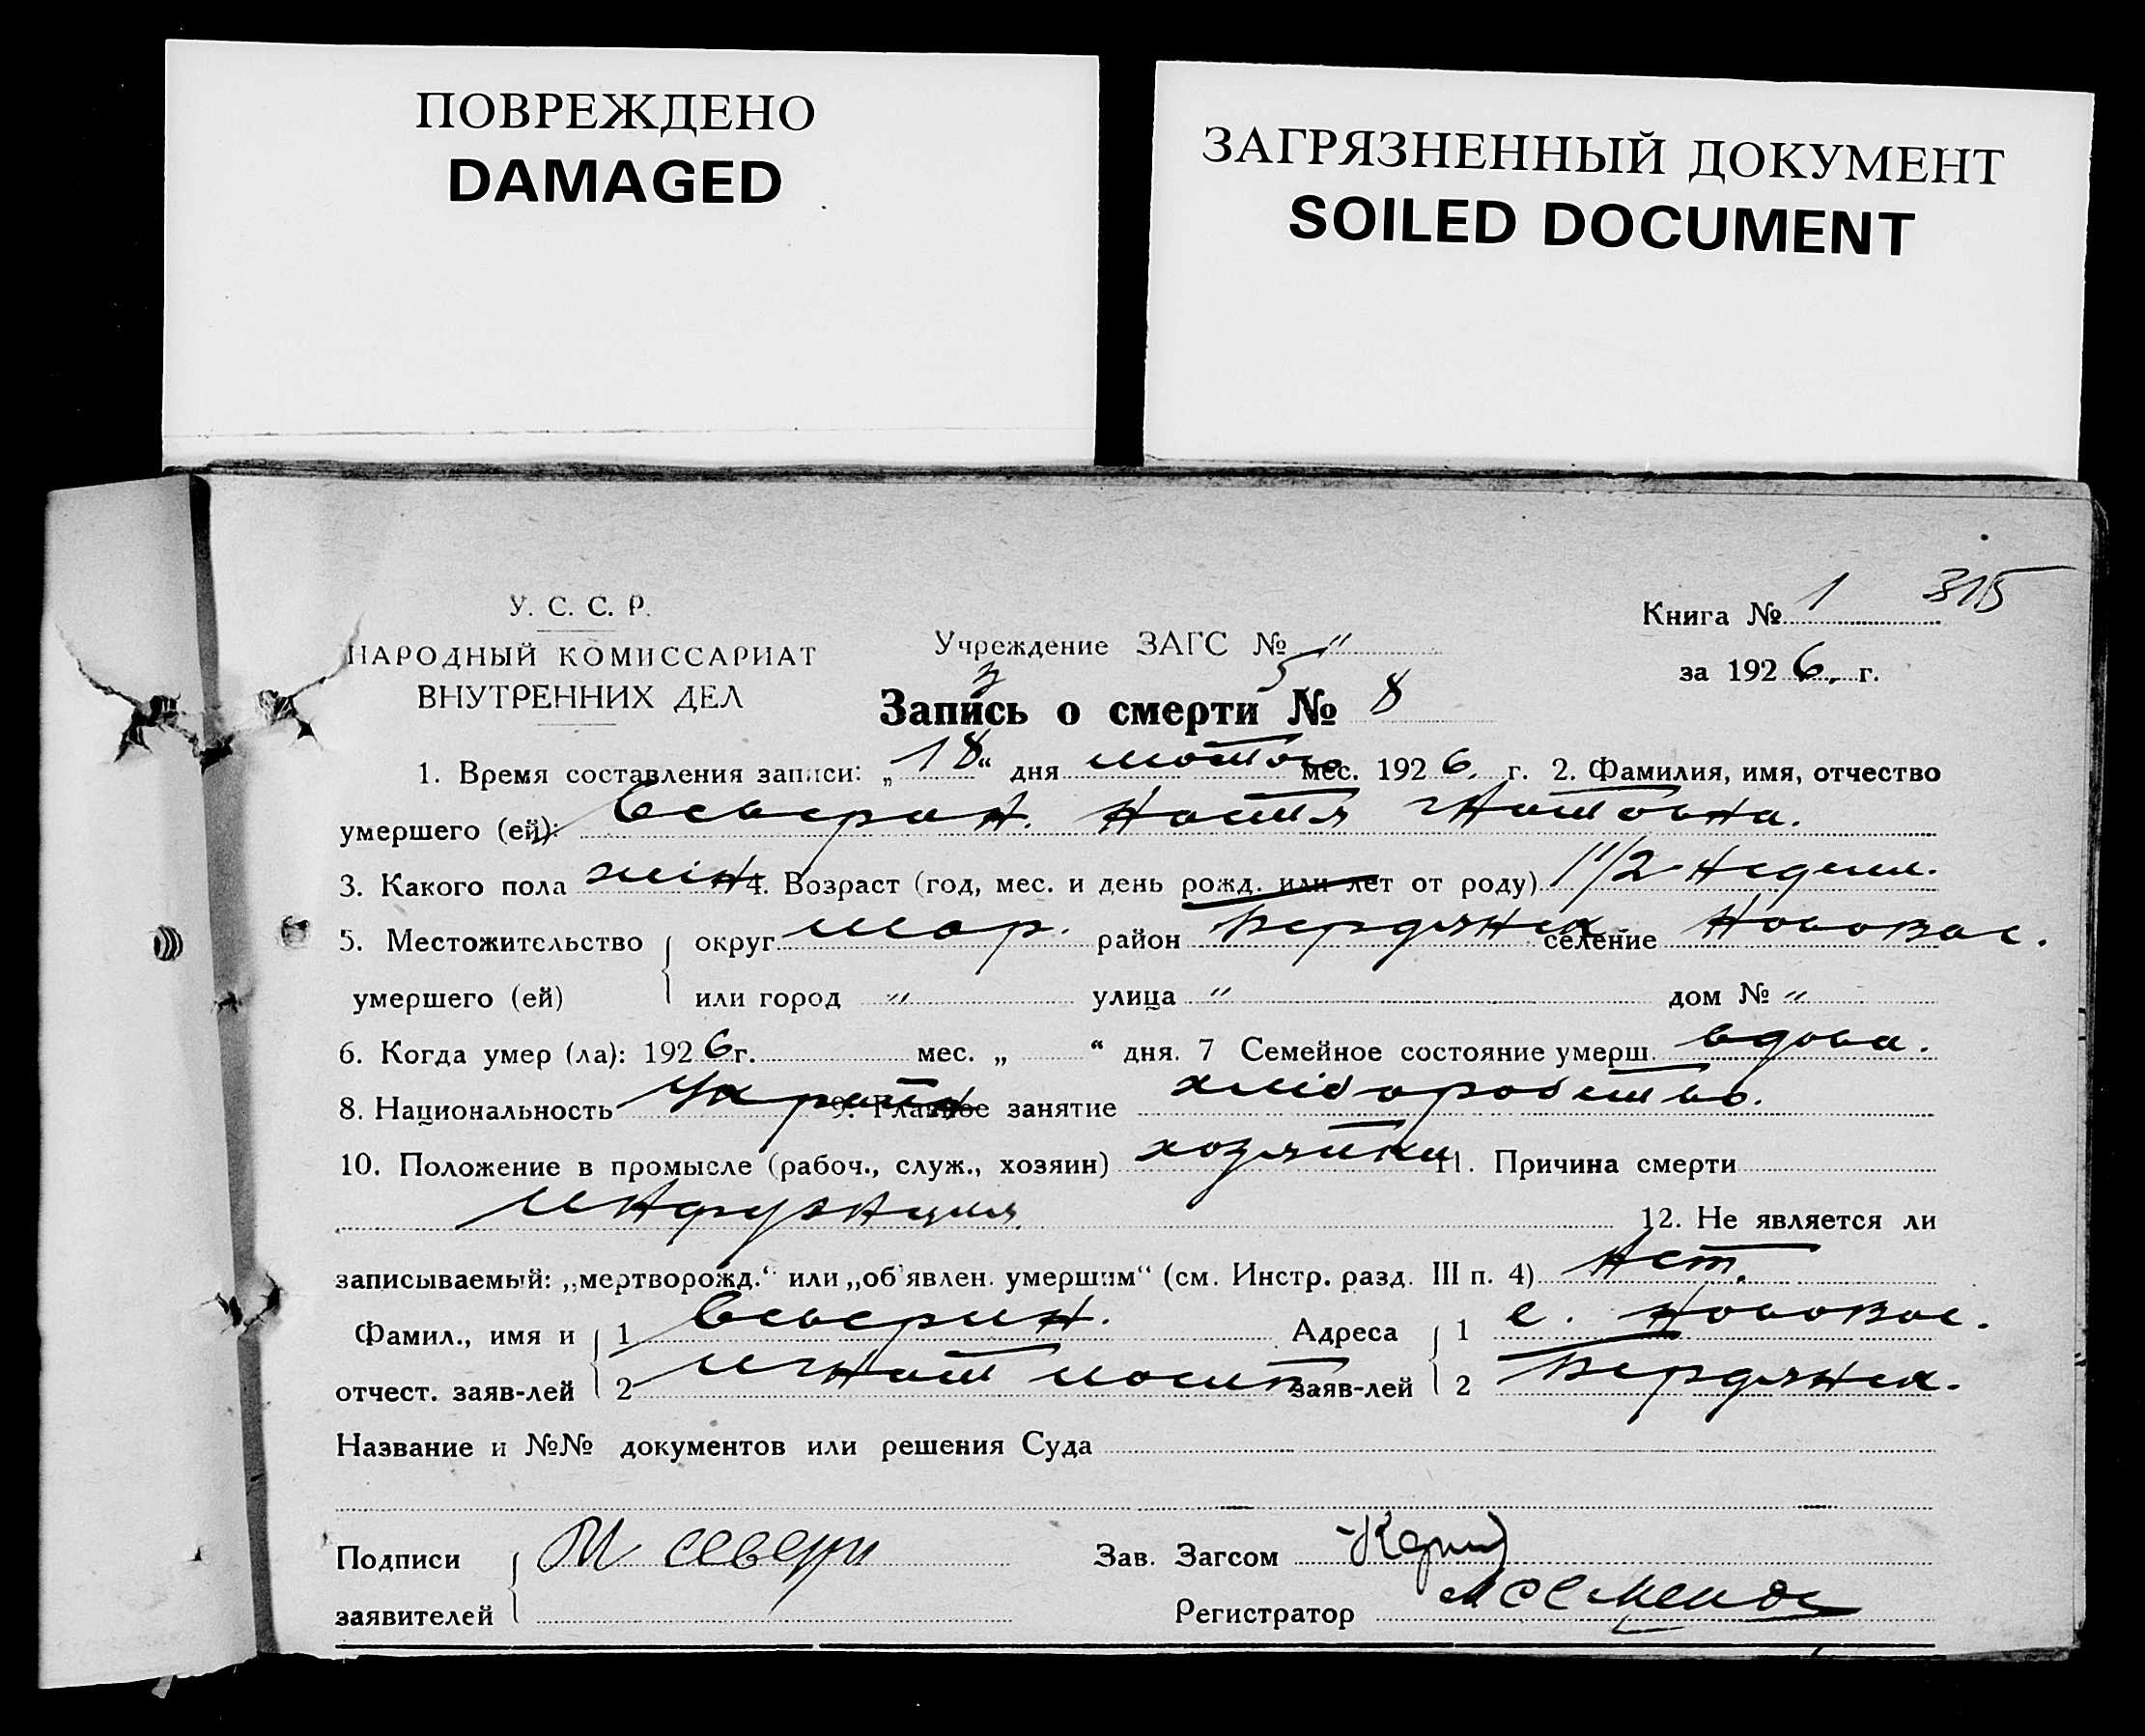 ПОВРЕЖДЕНО
DAMAGED
ЗАГРЯЗНЕННЫЙ ДОКУМЕНТ
SOILED DOCUMENT
У. С. С. Р.
НАРОДНЫЙ КОМИССАРИАТ
ВНУТРЕННИХ ДЕЛ
Учреждение ЗАГС № "
Книга № 1 315
за 1926 г.
Запись о смерти № 8
1. Время составления записи: „18“ дня лютого мес. 1926 г. 2. Фамилия, имя, отчество
умершего (ей): Северин. Настя
3. Какого пола жін 4. Возраст (год, мес. и день рожд. или лет от роду) 1 1/2 недели.
5. Местожительство округ Мар. район Бердянск селение Нововас.
умершего (ей) или город " улица " дом № "
6. Когда умер (ла): 1926 г. мес. „ “ дня. 7 Семейное состояние умерш. вдова.
8. Национальность Україн 9. Главное занятие хліборобство.
10. Положение в промысле (рабоч., служ., хозяин) хозяйка 11. Причина смерти
12. Не является ли
записываемый: „мертворожд.“ или „об'явлен. умершим“ (см. Инстр. разд. III п. 4) Нет.
Фамил., имя и 1 Северин. Адреса 1 с. Нововас.
отчест. заяв-лей 2 Игнат заяв-лей 2 Бердянск.
Название и №№ документов или решения Суда
Подписи Севери Зав. Загсом
заявителей Регистратор